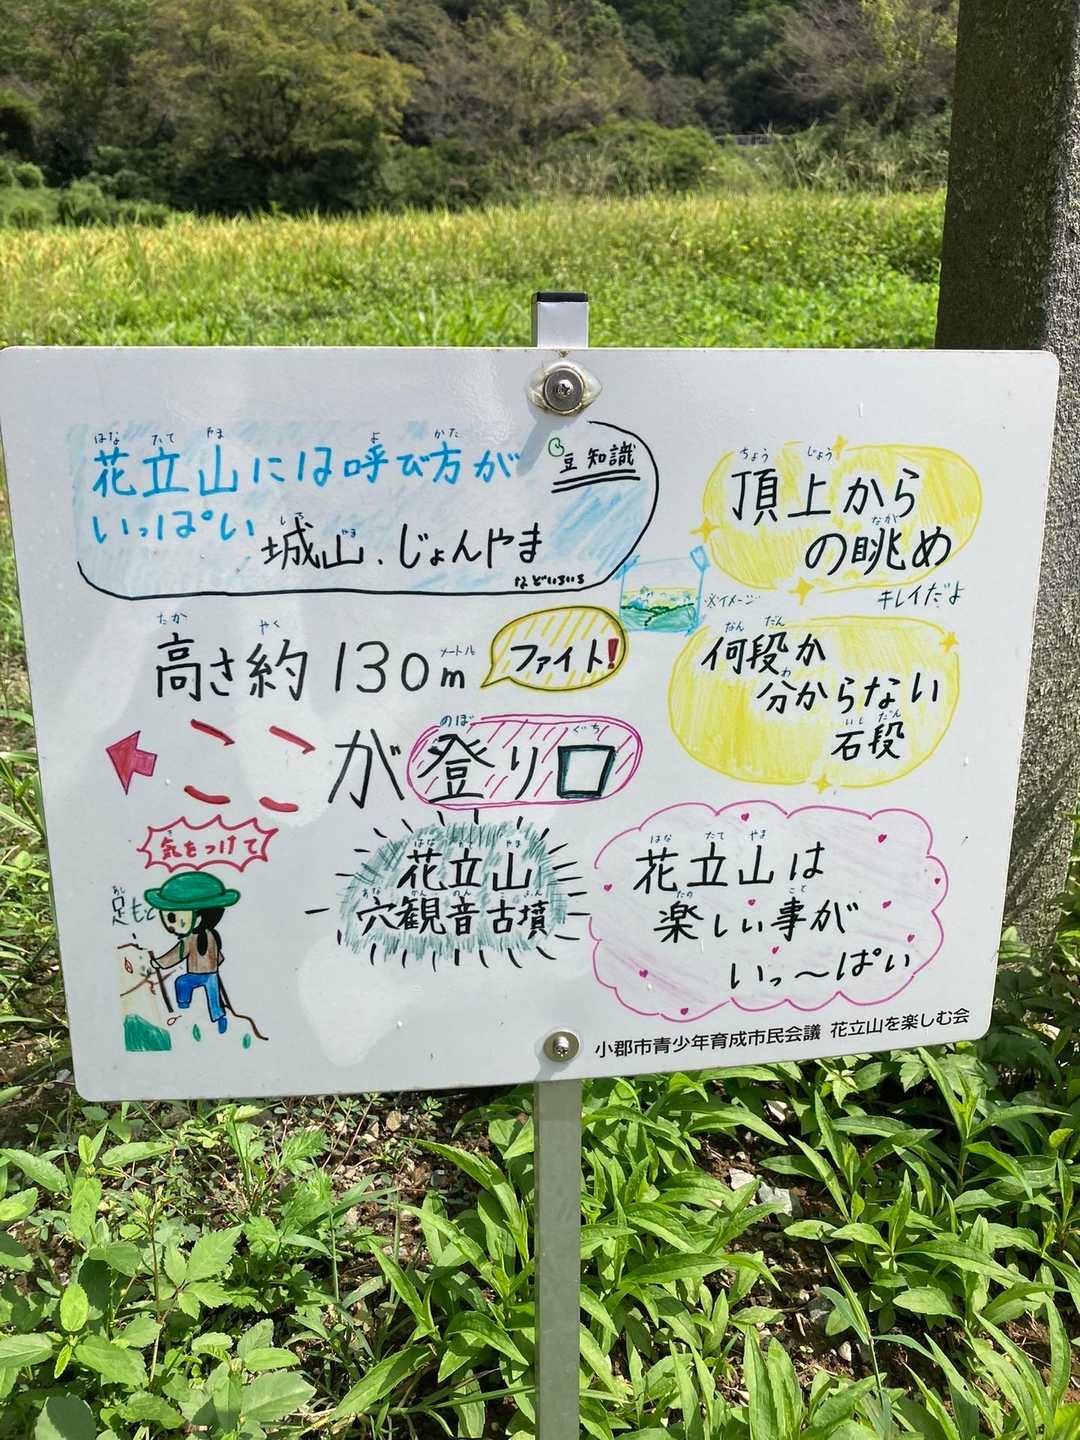 花立山には呼び方が
いっぱい
豆知識
城山、じょんやま
などいろいろ
頂上から
の眺め
キレイだよ
※イメージ
高さ約130m
ファイト!
何段か
分からない
石段
ここが登り口
気をつけて
足もと
花立山
穴観音古墳
花立山は
楽しい事が
いっ〜ぱい
小郡市青少年育成市民会議 花立山を楽しむ会